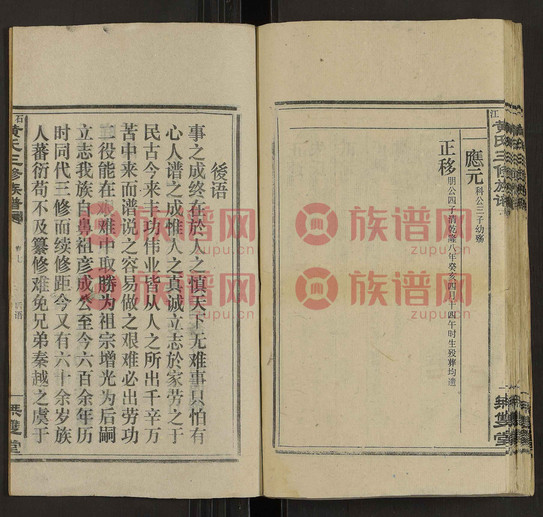 江
黄氏三修族谱
無雙堂
應元 科公三子幼殤
正移 朋公四子清乾隆八年癸亥四月十四午时生殁葬均遗
石
黄氏三修族谱
卷上
后语
無雙堂
後语
事之成终在於人之慎天下无难事只怕有
心人谱之成惟人之真诚立志於家劳之于
民古今来丰功伟业皆从人之所出千辛万
苦中来而谱说之容易做之艰难必出劳功
三役能在艰难中取勝为祖宗增光为后嗣
立志我族自鼻祖彦成公至今六百余年历
时同代三修而续修距今又有六十余岁族
人蕃衍苟不及纂修难免兄弟秦越之虞于
族谱网
zupu.cn